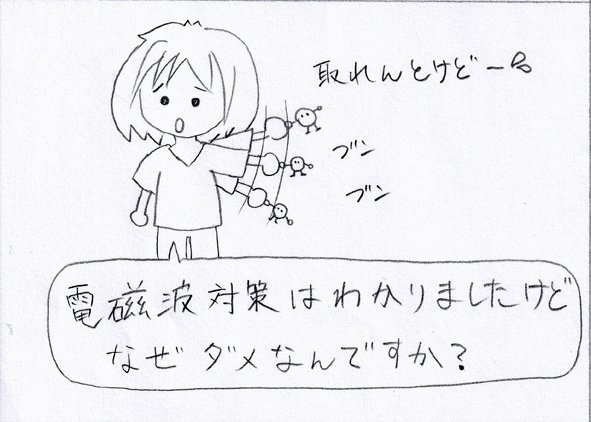 取れんとけどー。
ブン
ブン
電磁波対策はわかりましたけど
なぜダメなんですか?